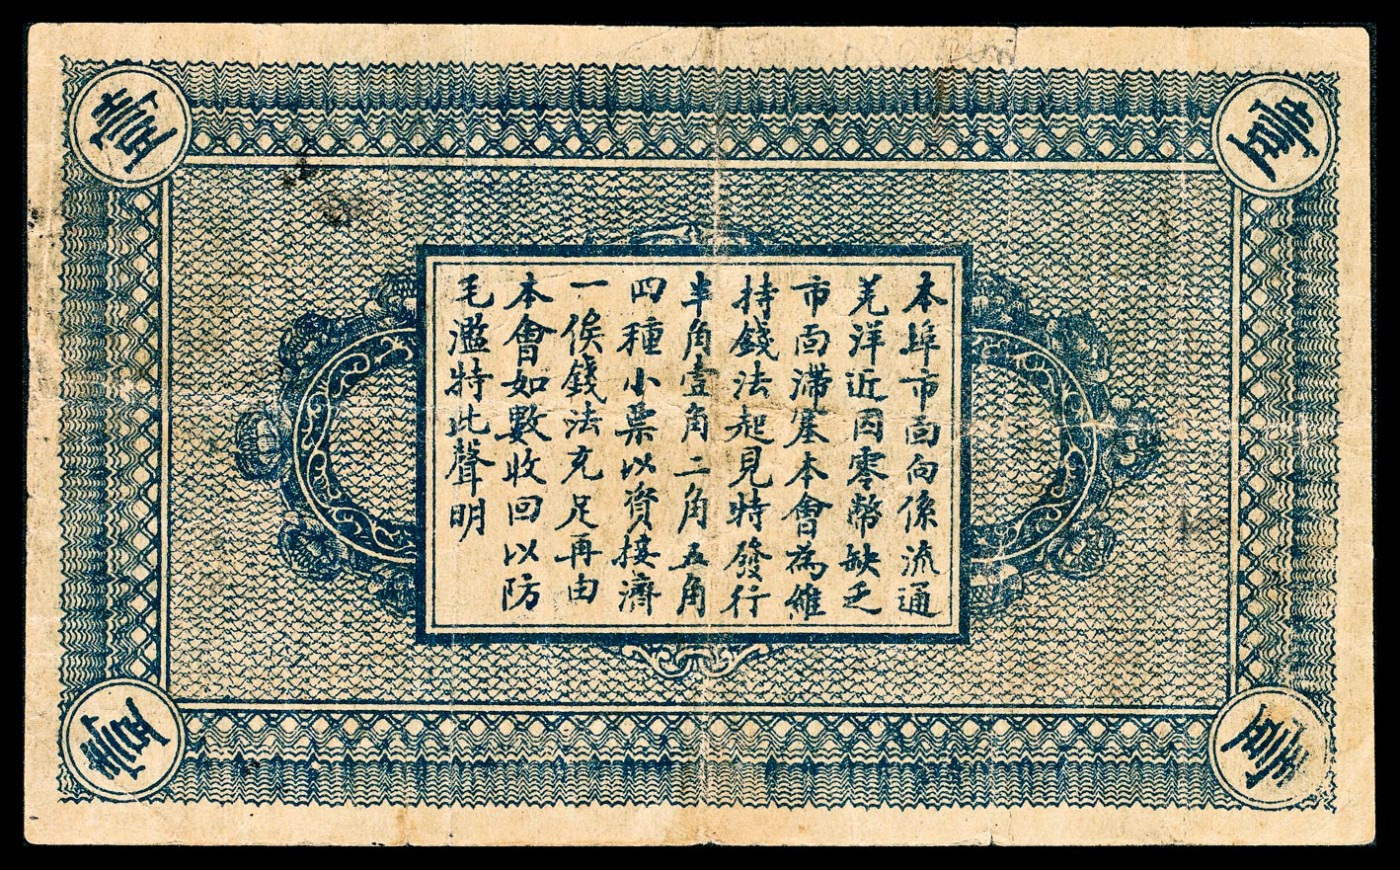 壹
壹
本埠市面向係流通
羌洋近因零幣缺乏
市面滞塞本會為維
持錢法起見特發行
半角壹角二角五角
四種小票以資接濟
一俟錢法充足再由
本會如數收回以防
毛濫特此聲明
壹
壹